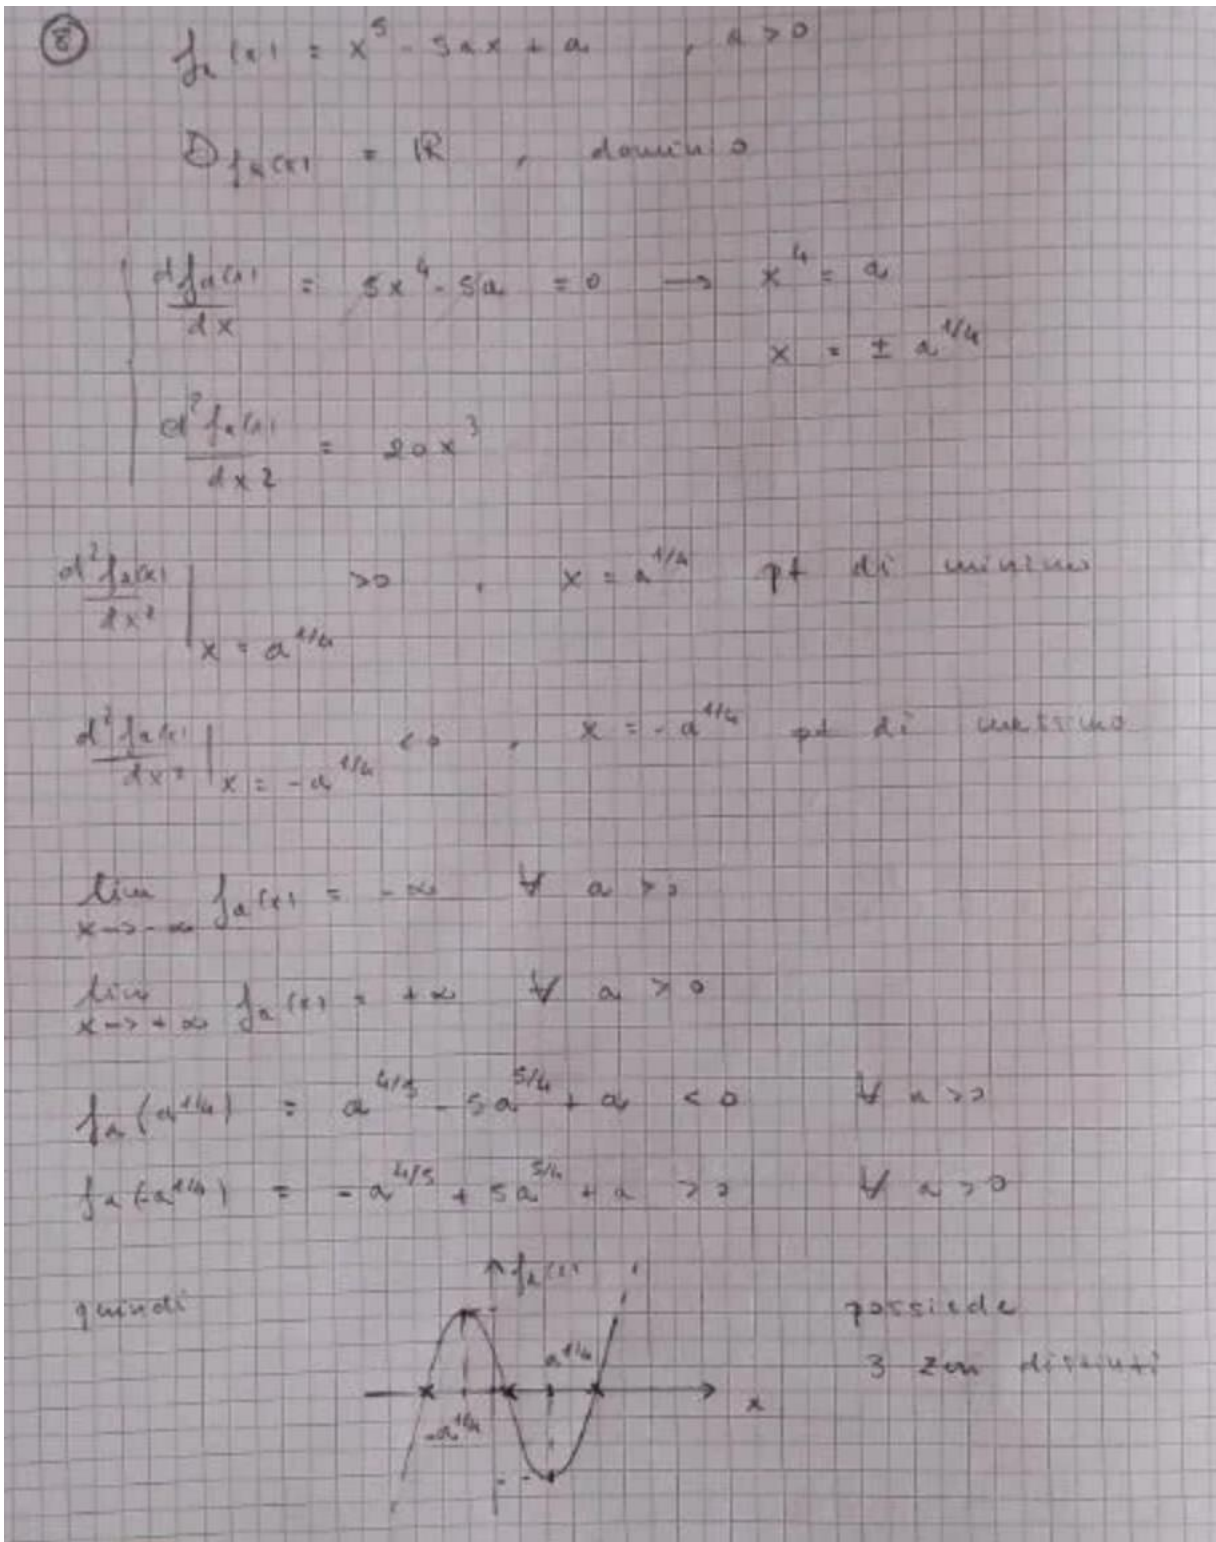 ⑧ fₐ(x) = x⁵ - 5ax + a , a > 0
D fₐ(x) = ℝ , dominio
dfₐ(x)/dx = 5x⁴ - 5a = 0 → x⁴ = a
x = ± a^1/4
d²fₐ(x)/dx2 = 20x³
d²fₐ(x)/dx² | x = a^1/4 >0 , x = a^1/4 pt di minimo
d²fₐ(x)/dx² | x = -a^1/4 <0 , x = -a^1/4 pt di massimo
lim x->-∞ fₐ(x) = -∞ ∀ a >0
lim x->+∞ fₐ(x) = +∞ ∀ a > 0
fₐ(a^1/4) = a^4/5 - 5a^5/4 + a < 0 ∀ a >0
fₐ(-a^1/4) = -a^4/5 + 5a^5/4 + a >0 ∀ a >0
fₐ(x)
quindi possiede
a^1/4 3 zeri distinti
x
-a^1/4